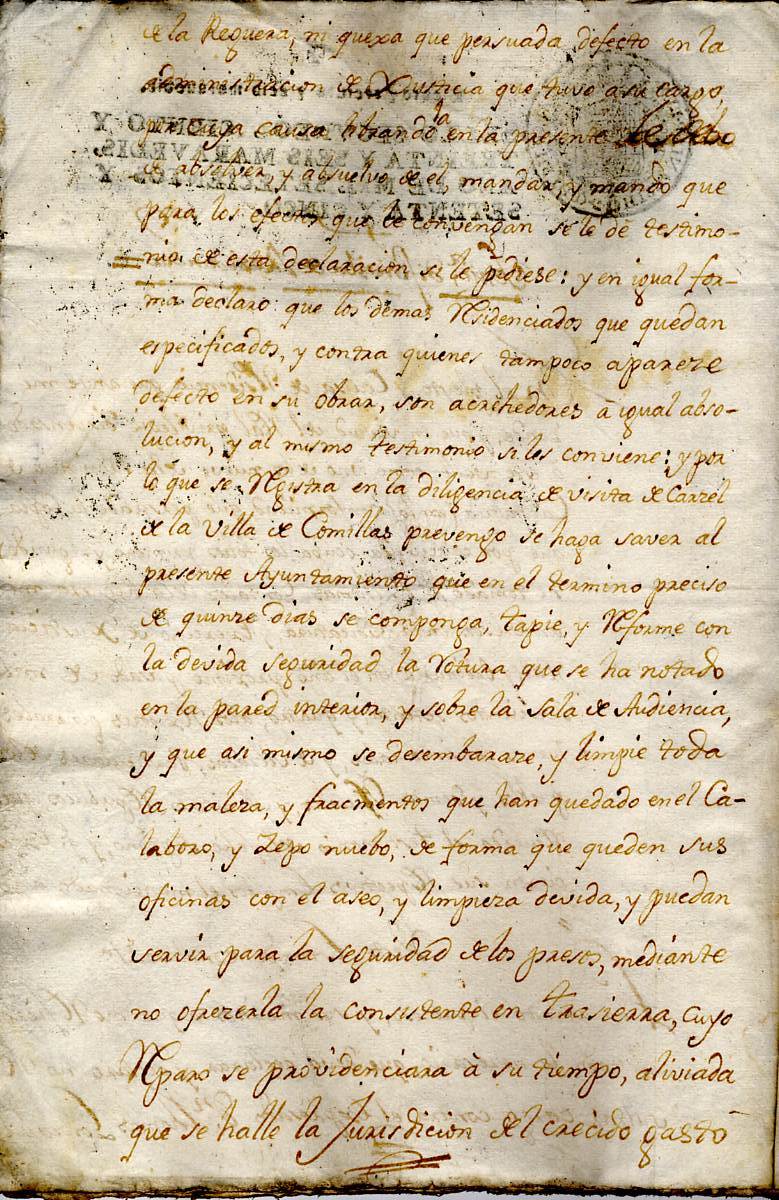 de la Reguera, ni quexa que persuada defecto en la
administracion de Xusticia que tuvo a su cargo,
por cuya causa librando la en la presente le debo
de absolver, y absuelvo de el mandar, y mando que
para los efectos que le convengan se le de testimo-
nio de esta declaracion si le pidiese: y en igual for-
ma declaro que los demas Residenciados que quedan
especificados, y contra quienes tampoco apareze
defecto en su obrar, son acrehedores à igual abso-
lucion, y al mismo testimonio si les conviene: y por
lo que se Registra en la diligencia de visita de Carzel
de la Villa de Comillas prevengo se haga saver al
presente Ayuntamiento que en el termino preciso
de quinze dias se componga, tapie, y Reforme con
la devida seguridad la Rotura que se ha notado
en la pared interior, y sobre la Sala de Audiencia,
y que asi mismo se desembaraze, y limpie toda
la maleza, y fracmentos que han quedado en el Ca-
labozo, y Zepo nuebo, de forma que queden sus
oficinas con el aseo, y limpieza devida, y puedan
servir para la seguridad de los presos, mediante
no ofrezerla la consistente en trasierra, cuyo
Reparo se providenciara à su tiempo, aliviada
que se halle la Jurisdicion del crecido gasto
TREINTA Y SEIS MARAVEDIS,
SETENTA Y CINCO